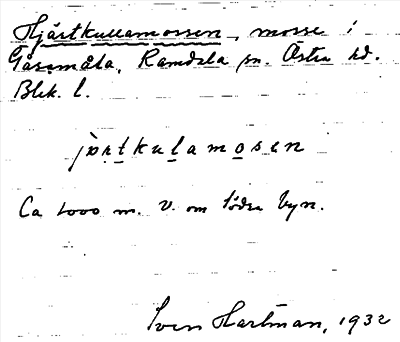 Hjärtkullamossen, mosse i
Gåsamåla, Ramdala sn. Östra hd.
Blek. l.
järtkulamosen
Ca 1000 m. V. om Södra byn.
Sven Hartman, 1932